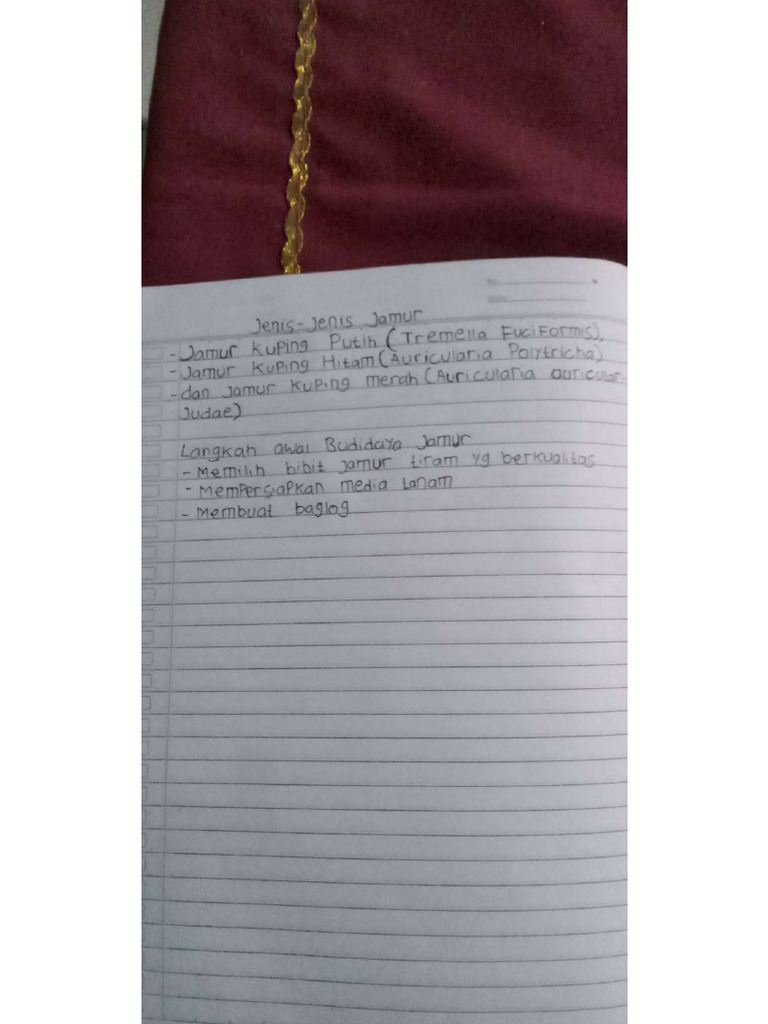 No.
Date.
Jenis-Jenis Jamur
- Jamur Kuping Putih (Tremella Fuciformis),
- Jamur Kuping Hitam (Auricularia Polytricha)
- dan Jamur Kuping merah (Auricularia auricular-
Judae)
Langkah awal Budidaya Jamur
- Memilih bibit jamur tiram yg berkualitas
- Mempersiapkan media tanam
- Membuat baglog